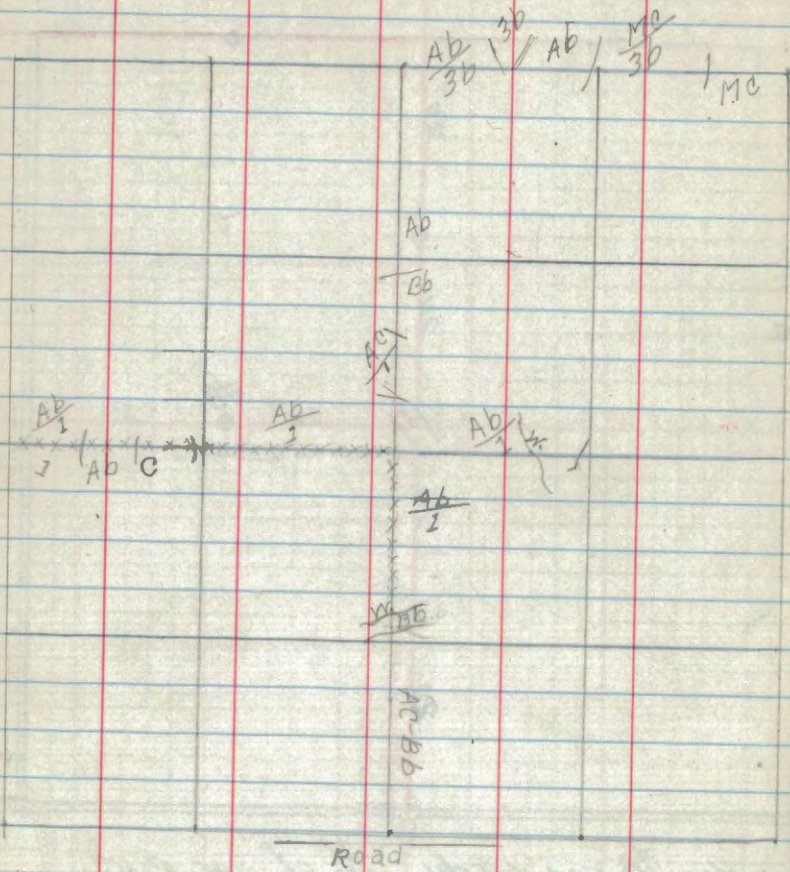 Ab/3b 3b Ab Mc/3b MC
Ab
Bb
AC
Ab/1 Ab/1 Ab/1
1 Ab C
Ab/1
Bb
AC-Bb
Road